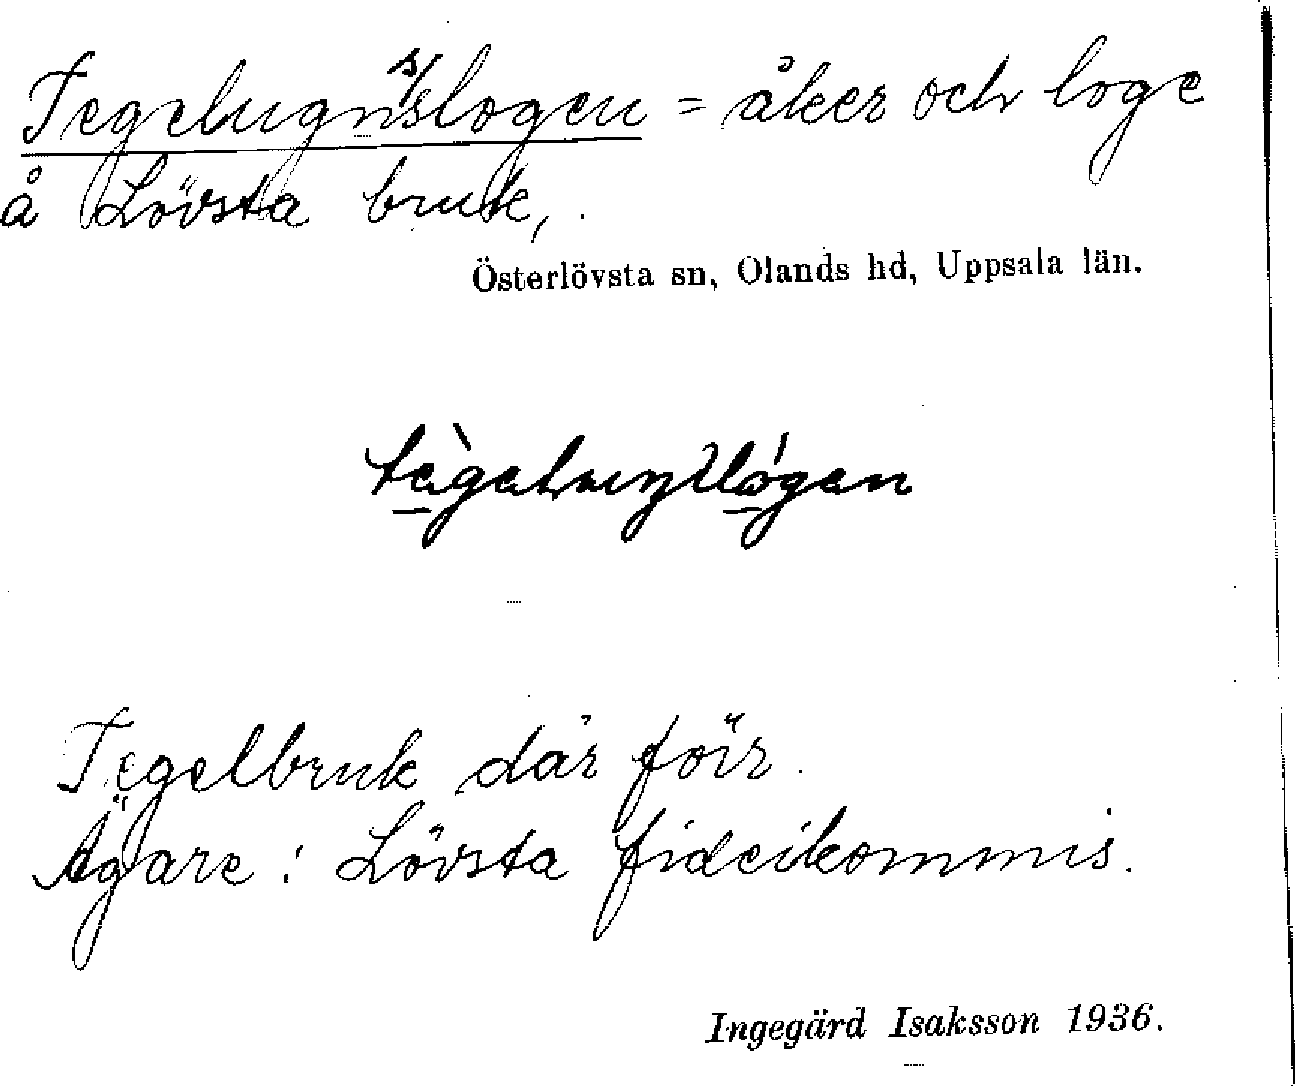 Tegelugnslogen = åker och loge
å Lövsta bruk,
Österlövsta sn, Olands hd, Uppsala län.
Tegelbruk där förr.
Ägare: Lövsta fideikommis.
Ingegärd Isaksson 1936.